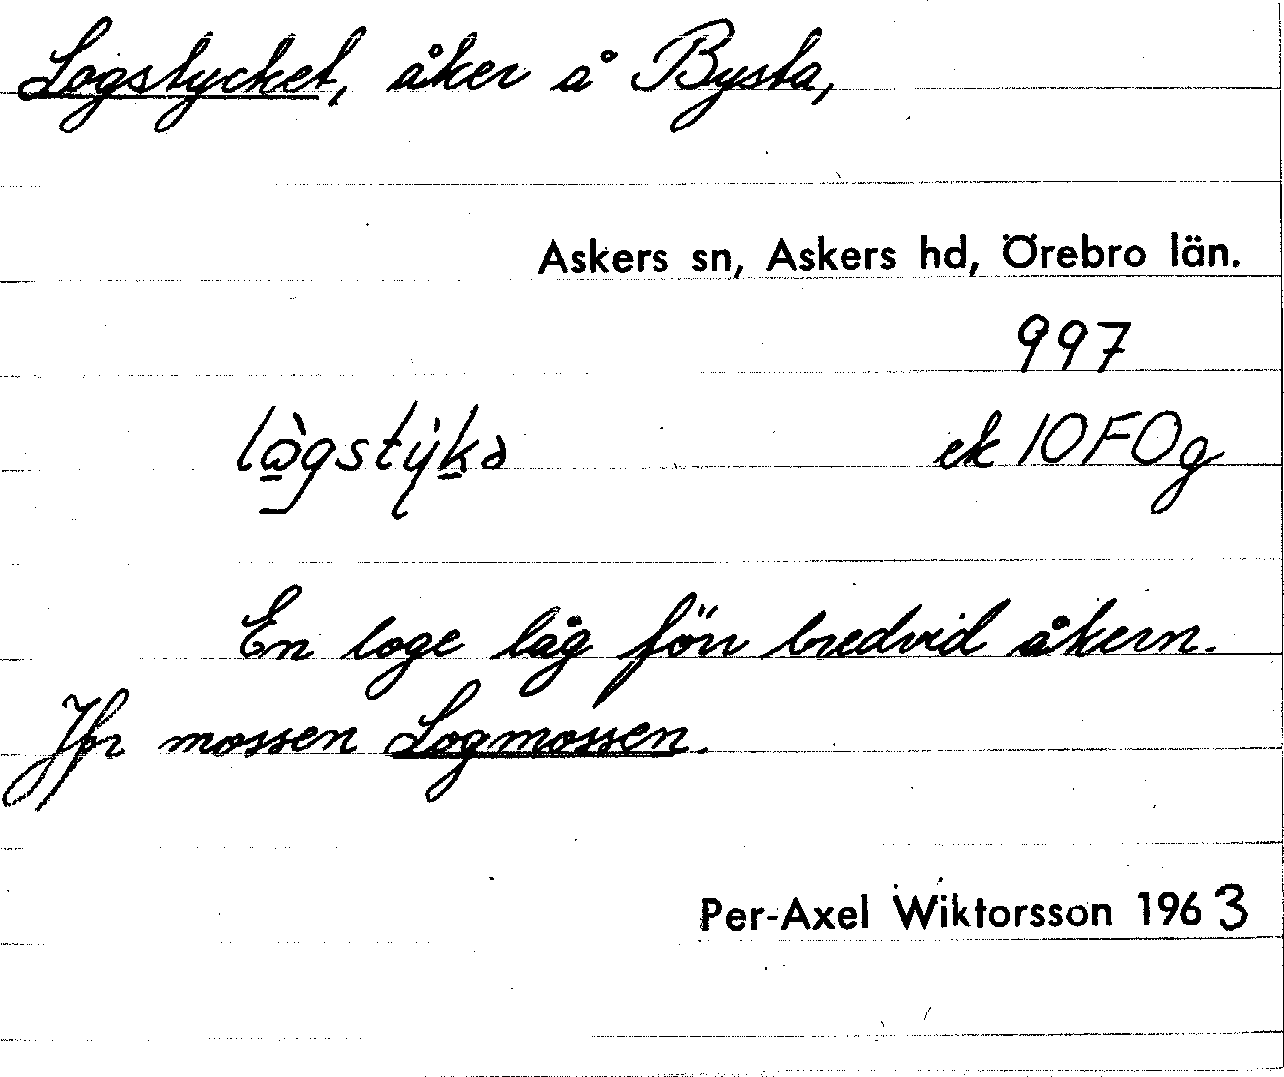 Logstycket, åker å Bysta,
Askers sn, Askers hd, Örebro län.
997
lo̠̊̀gstẏ́k̠ə ek 10FOg
En loge låg förr bredvid åkern.
Jfr mossen Logmossen.
Per-Axel Wiktorsson 1963